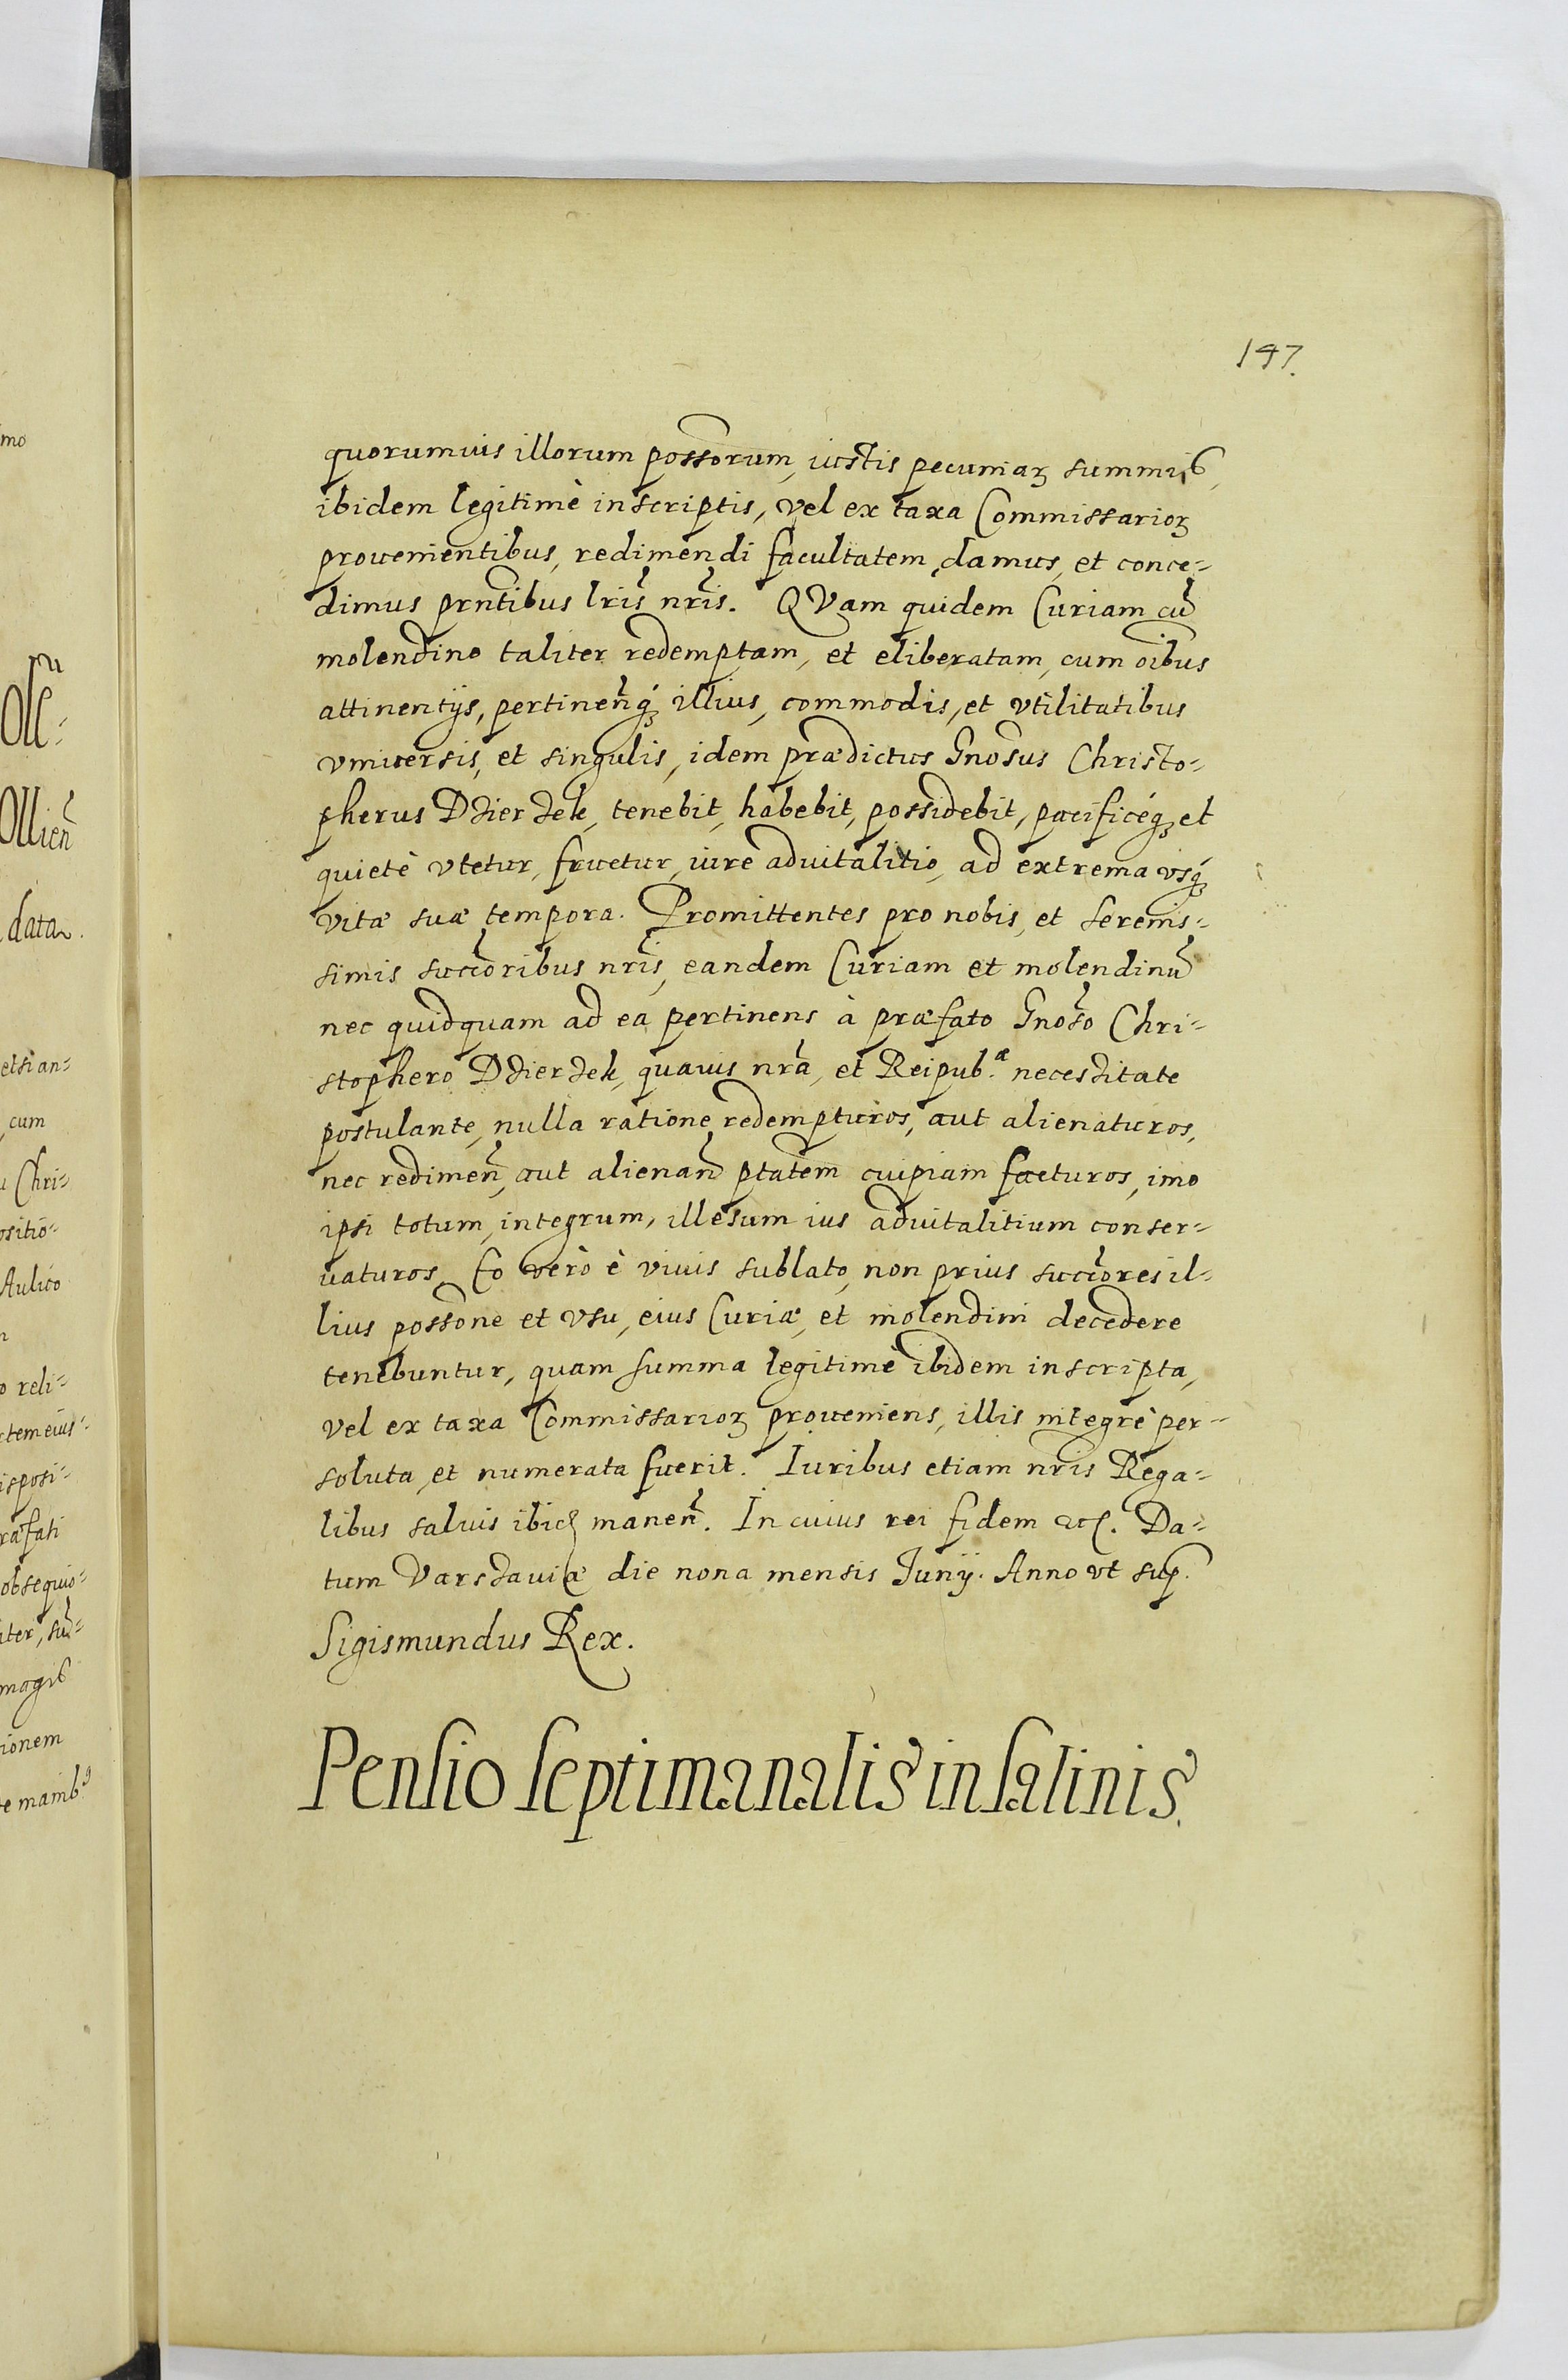 147.
quorumuis illorum possorum, iustis pecuniaꝝ summis,
ibidem legitimè inscriptis, vel ex taxa Commissarioꝝ
prouenientibus, redimendi facultatem, damus, et conce-
dimus prntibus lris nris. QVam quidem Curiam cū
molendino taliter redemptam, et eliberatam, cum oibus
attinentijs, pertinen̄q́ꝫ illius, commodis, et vtilitatibus
vniuersis, et singulis, idem prædictus Gnosus Christo-
pherus Dzierzek, tenebit, habebit, possidebit, pacificéqꝫ et
quietè vtetur, fruetur, iure aduitalitio, ad extrema vsq́ꝫ
vitæ suæ tempora. Promittentes pro nobis, et Serenis-
simis succoribus nris, eandem Curiam et molendinū
nec quidquam ad ea pertinens à præfato Gnoso Chri-
stophero Dzierzek, quauis nra, et Reipub.æ necessitate
postulante, nulla ratione redempturos, aut alienaturos,
nec redimen̄, aut alienan̄ ptatem cuipiam facturos, imo
ipsi totum, integrum, illesum ius aduitalitium conser-
uaturos. Eo verò è viuis sublato, non prius succores il-
lius possone et vsu, eius Curiæ, et molendini decedere
tenebuntur, quam summa legitimè ibidem inscripta,
vel ex taxa Commissarioꝝ proueniens, illis integrè per-
soluta, et numerata fuerit. Iuribus etiam nris Rega-
libus saluis ibid manen̄. In cuius rei fidem etc. Da-
tum Varssauiæ die nona mensis Junij. Anno vt sup.
Sigismundus Rex.
Pensio septimanalis in salinis.
mo
Ollien̄
data
etsi an-
cum
Chri-
ositio-
Aulico
reli-
ctem eius-
isposi-
ræfati
obsequio-
iter, su-
magis
ionem